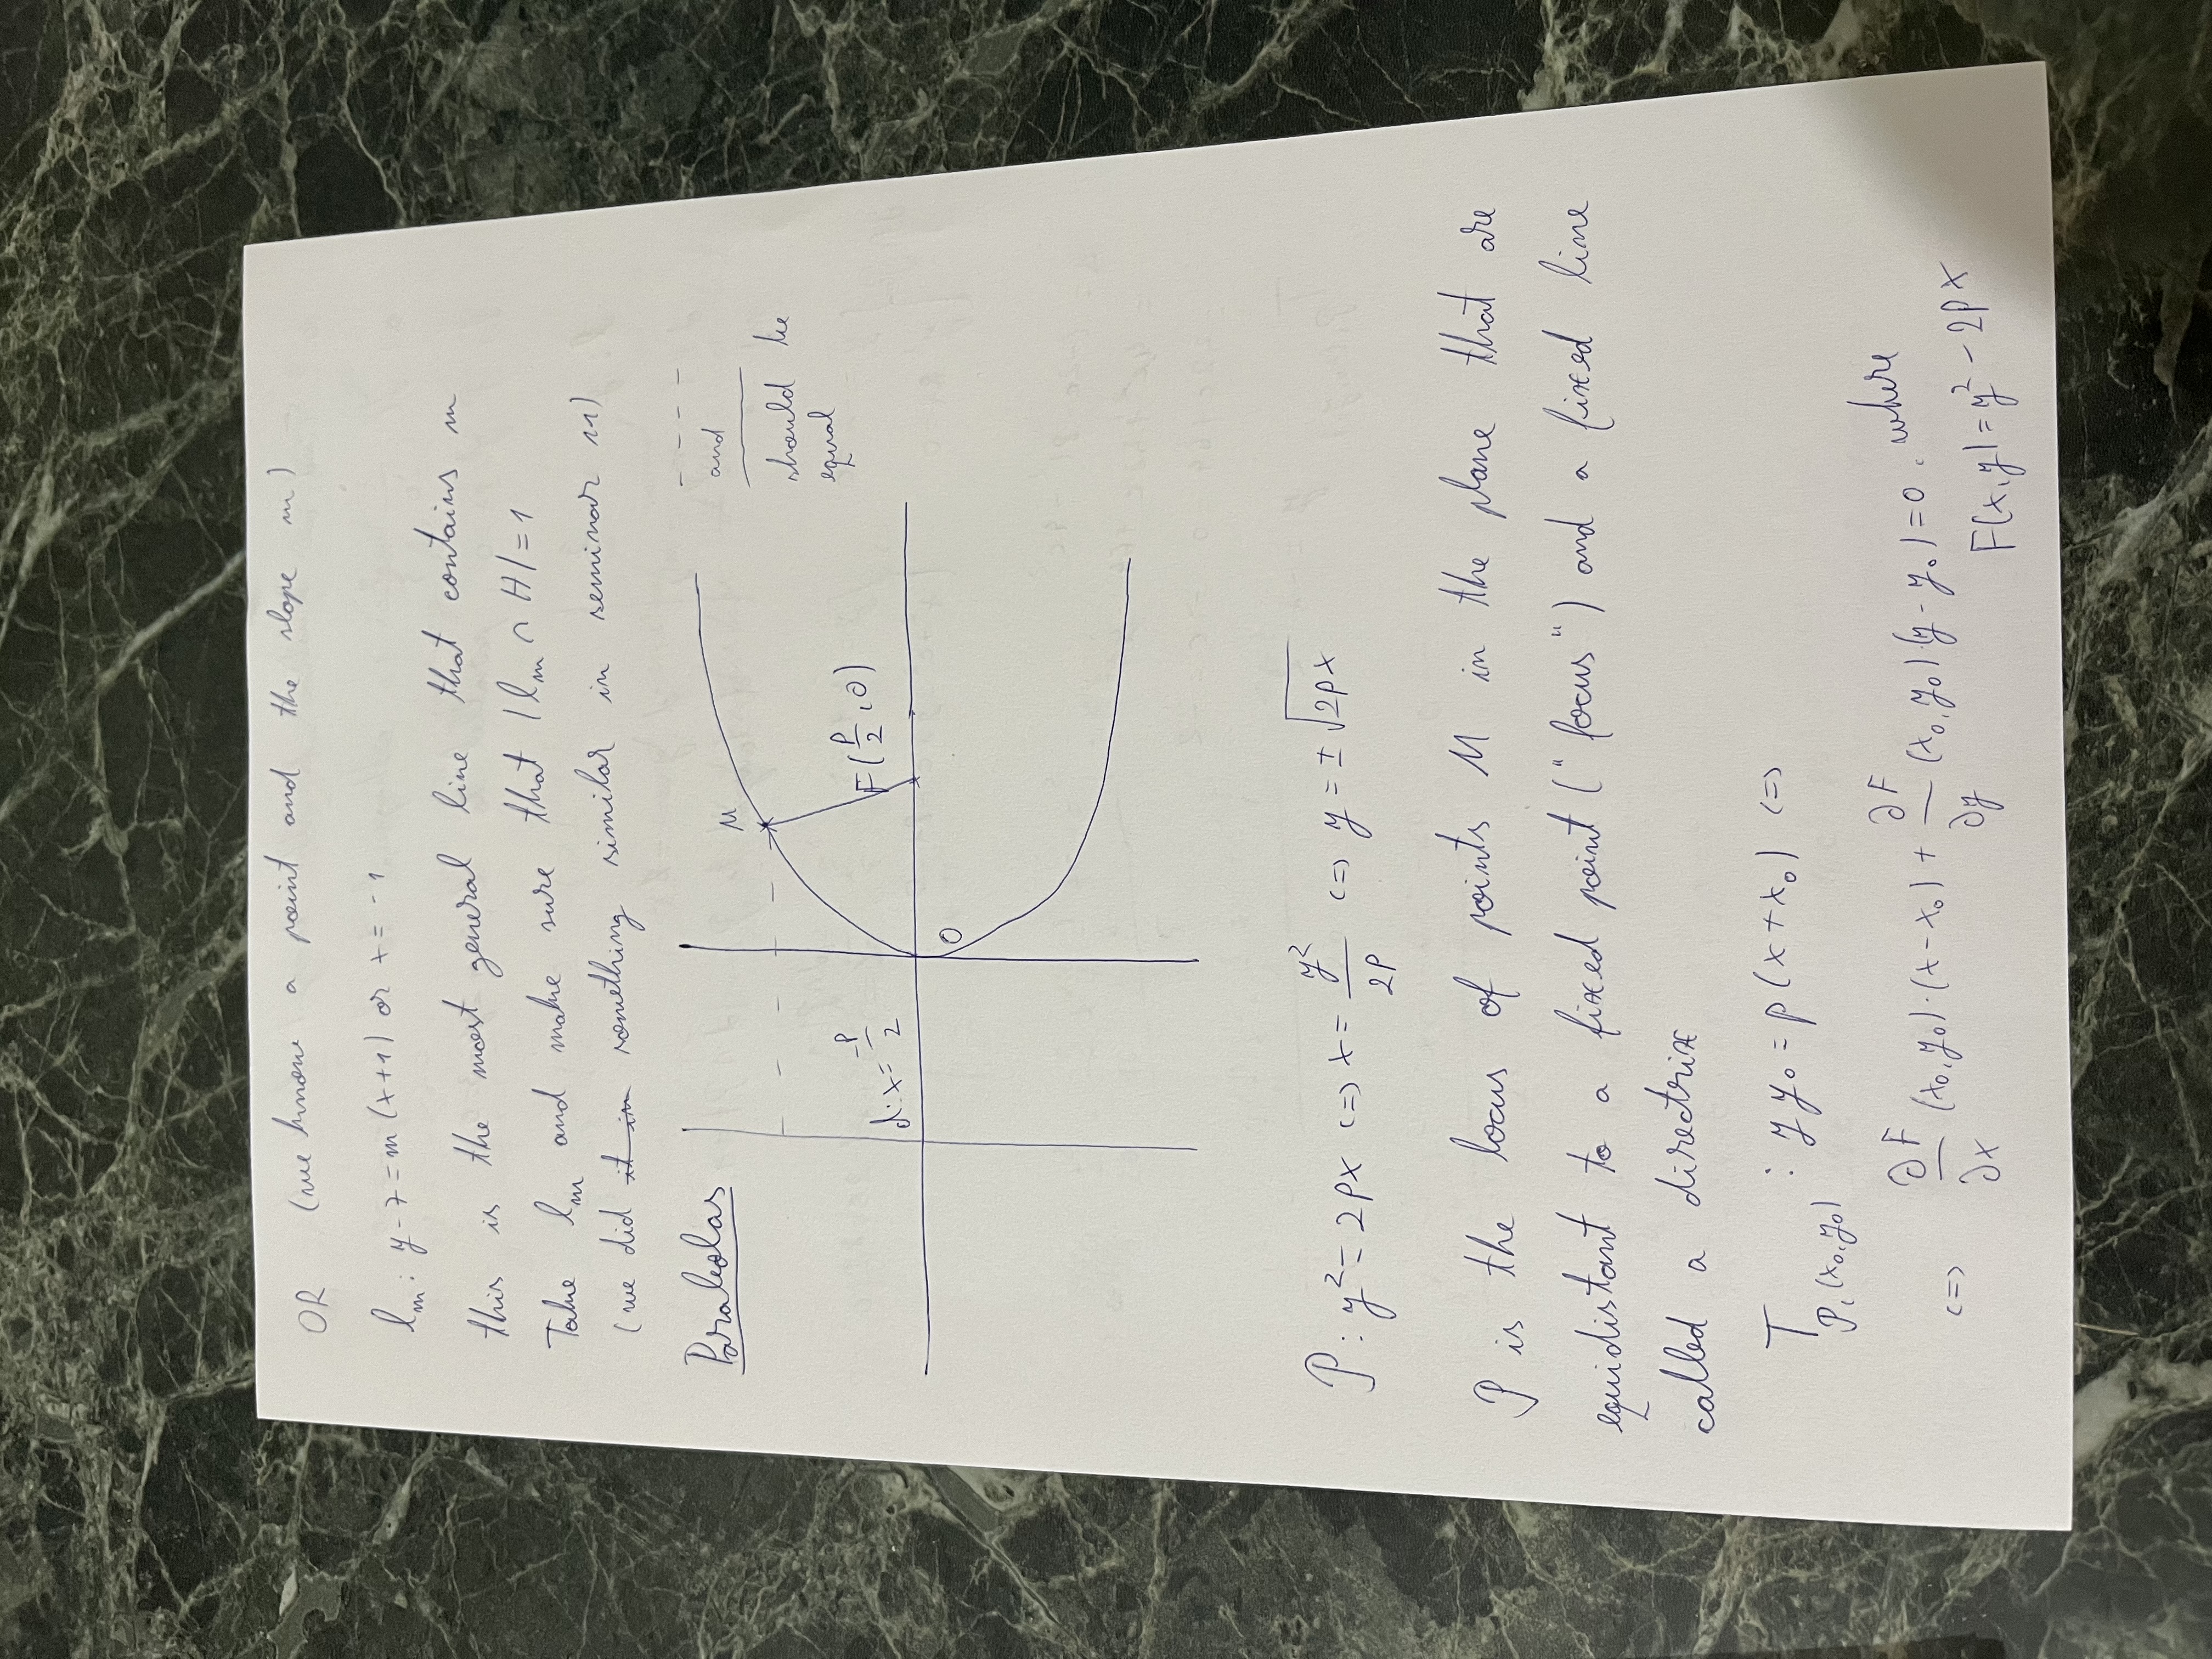 OR (we know a point and the slope m)
l_m: y-7=m(x+1) or x=-1
this is the most general line that contains m
Take l_m and make sure that |l_m ∩ H|=1
(we did it in something similar in seminar 11)
Parabolas
- - - -
and
should be
equal
M
d:x=-P/2
F(P/2,0)
O
P: y²=2px <=> x=y²/2p <=> y=±√2px
P is the locus of points M in the plane that are
equidistant to a fixed point ("focus") and a fixed line
called a directrix
T_P,(x₀,y₀) : yy₀=p(x+x₀) <=>
<=> ∂F/∂x (x₀,y₀)·(x-x₀)+∂F/∂y (x₀,y₀)·(y-y₀)=0, where
F(x,y)=y²-2px